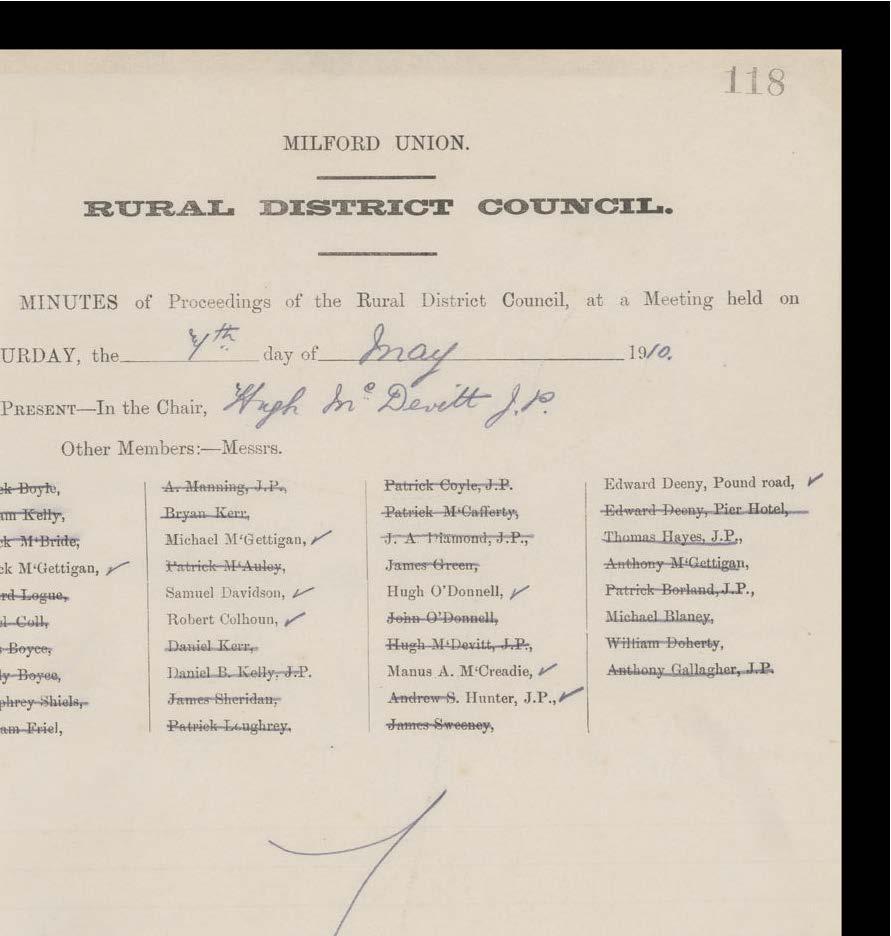 118
MILFORD UNION.
RURAL DISTRICT COUNCIL.
MINUTES of Proceedings of the Rural District Council, at a Meeting held on
URDAY, the 7th day of May 1910.
PRESENT—In the Chair, Hugh McDevitt J.P.
Other Members:—Messrs.
ck Boyle,
am Kelly,
ck M‘Bride,
ck M‘Gettigan,
rd Logue,
l Coll,
s Boyce,
ly Boyce,
phrey Shiels,
am Friel,
A. Manning, J.P.,
Bryan Kerr,
Michael M‘Gettigan,
Patrick M‘Auley,
Samuel Davidson,
Robert Colhoun,
Daniel Kerr,
Daniel B. Kelly, J.P.
James Sheridan,
Patrick Loughrey,
Patrick Coyle, J.P.
Patrick M‘Cafferty,
J. A. Diamond, J.P.,
James Green,
Hugh O’Donnell,
John O’Donnell,
Hugh M‘Devitt, J.P.,
Manus A. M‘Creadie,
Andrew S. Hunter, J.P.,
James Sweeney,
Edward Deeny, Pound road,
Edward Deeny, Pier Hotel,
Thomas Hayes, J.P.,
Anthony M‘Gettigan,
Patrick Borland, J.P.,
Michael Blaney,
William Doherty,
Anthony Gallagher, J.P.